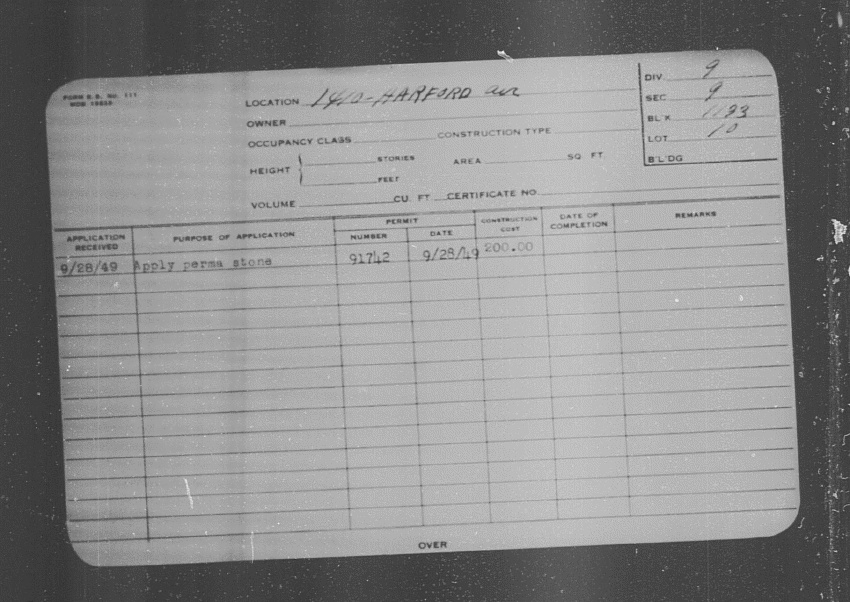 FORM B.B. No. 111
LOCATION 1410-HARFORD av
OWNER
OCCUPANCY CLASS CONSTRUCTION TYPE
HEIGHT STORIES AREA SQ FT
FEET
VOLUME CU. FT CERTIFICATE NO
DIV 9
SEC 9
BL'K
LOT 10
B'L'DG
APPLICATION RECEIVED PURPOSE OF APPLICATION PERMIT NUMBER DATE CONSTRUCTION COST DATE OF COMPLETION REMARKS
9/28/49 Apply perma stone 91742 9/28/49 200.00
OVER